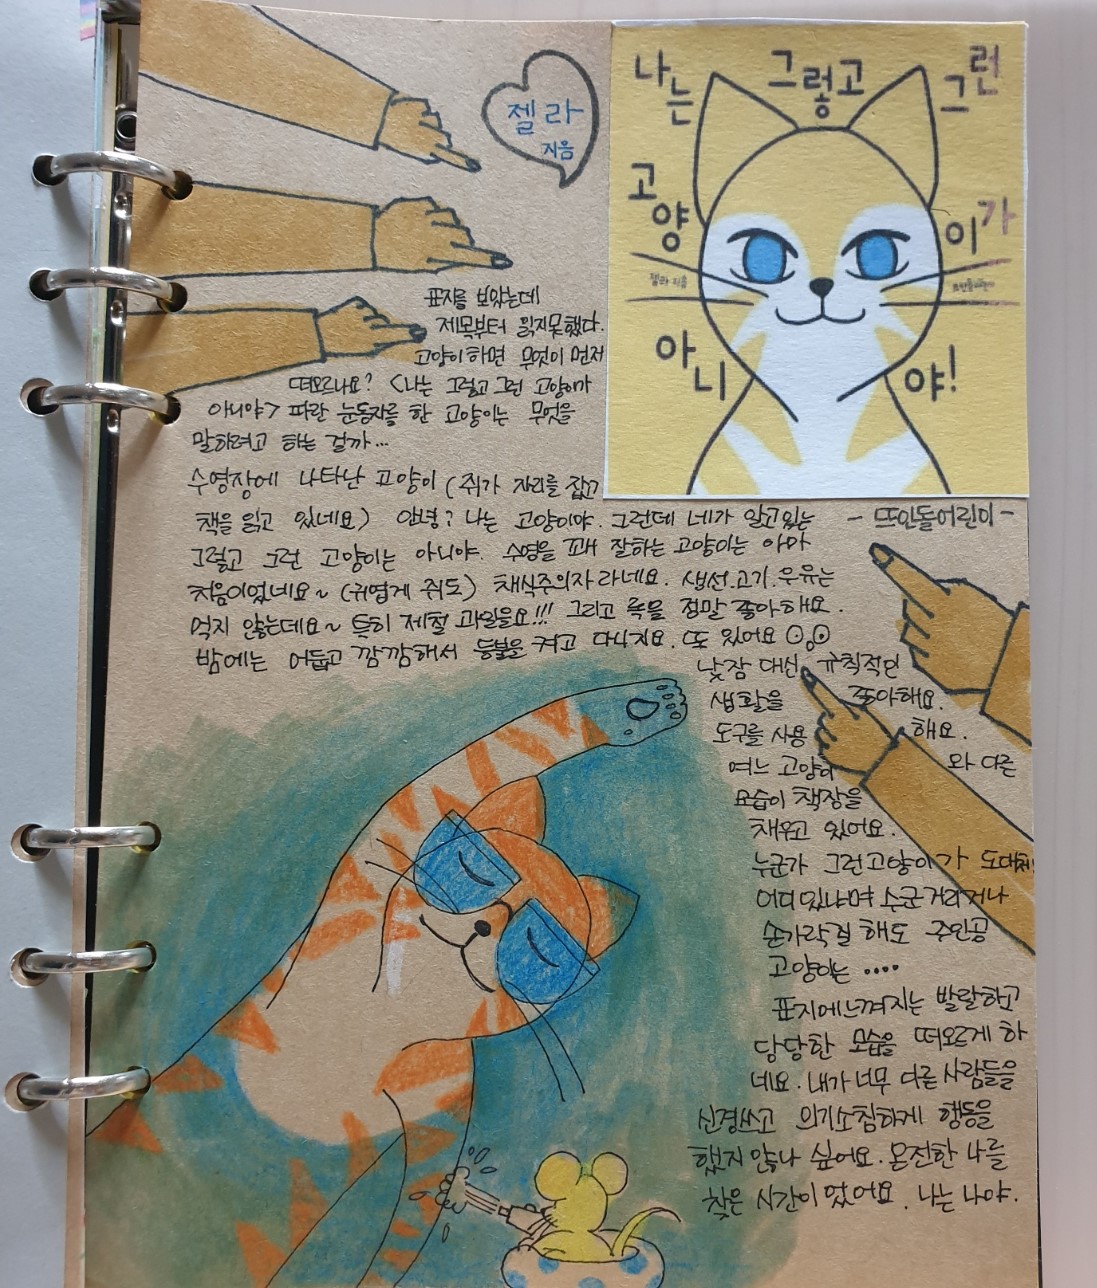 젤라
지음
나는 그렇고 그런
고양이가
젤라 지음
아니야!
표지를 보았는데
제목부터 읽지못했다.
고양이하면 무엇이 먼저
떠오르나요? <나는 그렇고 그런 고양이가
아니야> 파란 눈동자를 한 고양이는 무엇을
말하려고 하는 걸까...
수영장에 나타난 고양이 (쥐가 자리를 잡고
책을 읽고 있네요) 안녕? 나는 고양이야. 그런데 네가 알고있는
- 뜨인돌어린이 -
그렇고 그런 고양이는 아니야. 수영을 꽤 잘하는 고양이는 아마
처음이었네요~ (귀엽게 쥐도) 채식주의자라네요. 생선.고기.우유는
먹지 않는데요~ 특히 제철 과일을요!!! 그리고 목욕을 정말 좋아해요.
밤에는 어둡고 깜깜해서 등불을 켜고 다니지요. 또 있어요
낮잠 대신 규칙적인
생활을 좋아해요.
도구를 사용 해요.
여느 고양이 와 다른
모습이 책장을
채우고 있어요.
누군가 그런고양이가 도대체
어디있냐며 수군거리거나
손가락질 해도 주인공
고양이는 ....
표지에느껴지는 발랄하고
당당한 모습을 떠오르게 하
네요. 내가 너무 다른 사람들을
신경쓰고 의기소침하게 행동을
했지 않나 싶어요. 온전한 나를
찾은 시간이 었어요. 나는 나야.